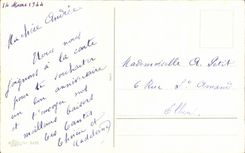 14 Mars 1944
Ma chère Andrée
Nous nous
joignons à la carte
pour te souhaiter
un bon anniversaire
et t'envoyer nos
meilleurs baisers
Tes tantes
et Madeleine
Mademoiselle A. Petit
6 Rue St Amand